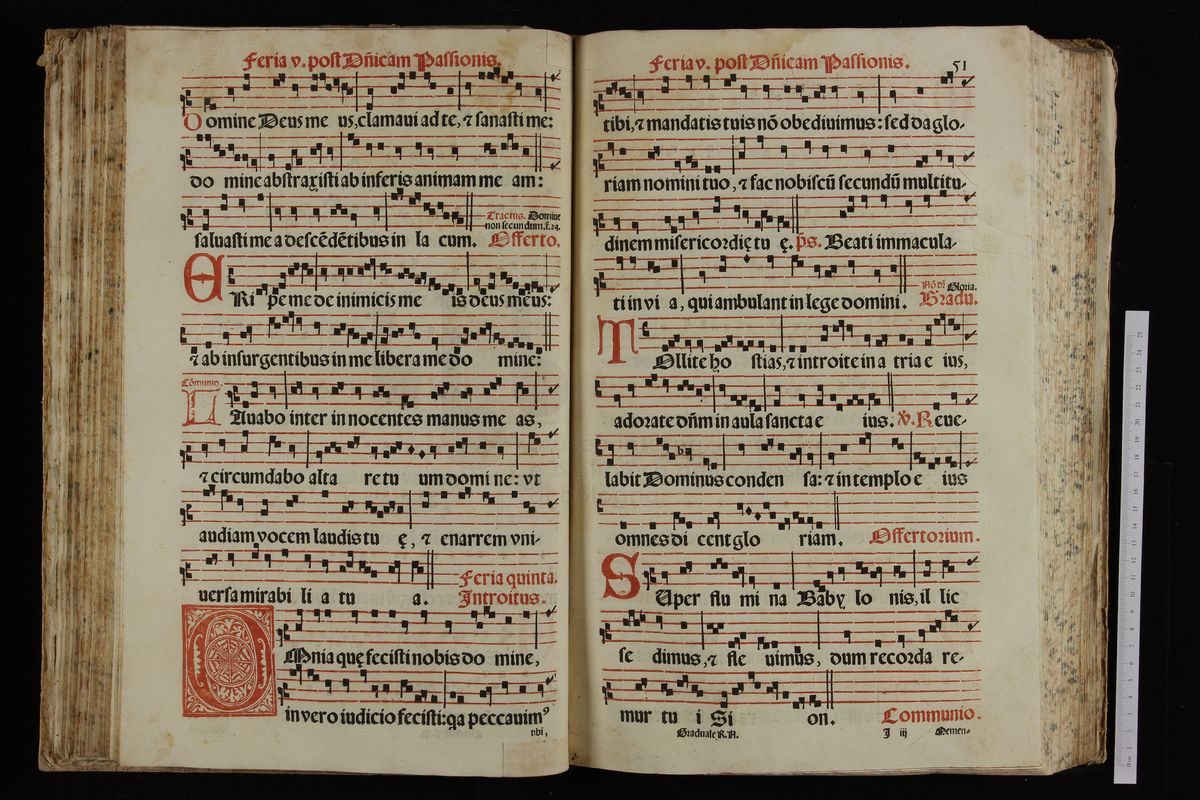 Feria v. post Dñicam Passionis.
Domine Deus me us, clamaui ad te, ⁊ sanasti me:
do mine abstraxisti ab inferis animam me am:
saluasti me a descẽdẽtibus in la cum.
Tractus. Domine
non secundum. f. 24.
Offerto.
ERi pe me de inimicis me is deus meus:
⁊ ab insurgentibus in me libera me do mine:
Cõmunio.
LAuabo inter in nocentes manus me as,
⁊ circumdabo alta re tu um domi ne: vt
audiam vocem laudis tu ę, ⁊ enarrem vni-
uersa mirabi li a tu a.
Feria quinta.
Introitus.
OMnia quę fecisti nobis do mine,
in vero iudicio fecisti: qa peccauimꝰ
tibi,
Feria v. post Dñicam Passionis.
51
tibi, ⁊ mandatis tuis nõ obediuimus: sed da glo-
riam nomini tuo, ⁊ fac nobiscũ secundũ multitu-
dinem misericordię tu ę. p̃s. Beati immacula-
ti in vi a, qui ambulant in lege domini.
Nõ dr̃ Gloria.
Gradu.
TOllite ho stias, ⁊ introite in a tria e ius,
adorate dñm in aula sancta e ius. ℣. Reue-
labit Dominus conden sa: ⁊ in templo e ius
omnes di cent glo riam. Offertorium.
SUper flu mi na Baby lo nis, il lic
se dimus, ⁊ fle uimus, dum recorda re-
mur tu i Si on. Communio.
Graduale R.A. I iij Memen-
0 cm 1 2 3 4 5 6 7 8 9 10 11 12 13 14 15 16 17 18 19 20 21 22 23 24 25